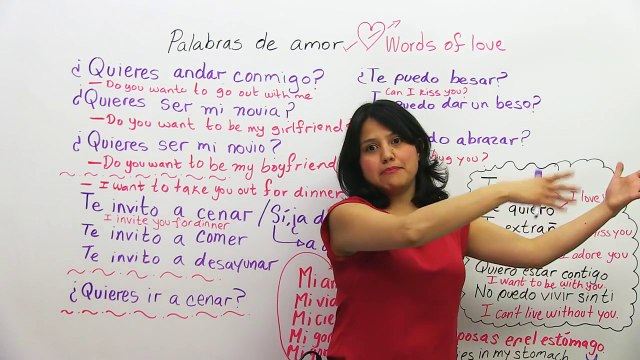 Palabras de amor Words of love
¿Quieres andar conmigo?
- Do you want to go out with me
¿Quieres ser mi novia?
- Do you want to be my girlfriend
¿Quieres ser mi novio?
- Do you want to be my boyfriend
- I want to take you out for dinner
Te invito a cenar / Sí, ¡a
I invite you for dinner
Te invito a comer
Te invito a desayunar
¿Quieres ir a cenar?
¿Te puedo besar?
Can I kiss you?
puedo dar un beso?
abrazar?
hug you?
I love
quiero
kiss you
I adore you
Quiero estar contigo
I want to be with you
No puedo vivir sin ti
I can't live without you.
Mi
Mi
Mi
Mi
en el estómago
in my stomach